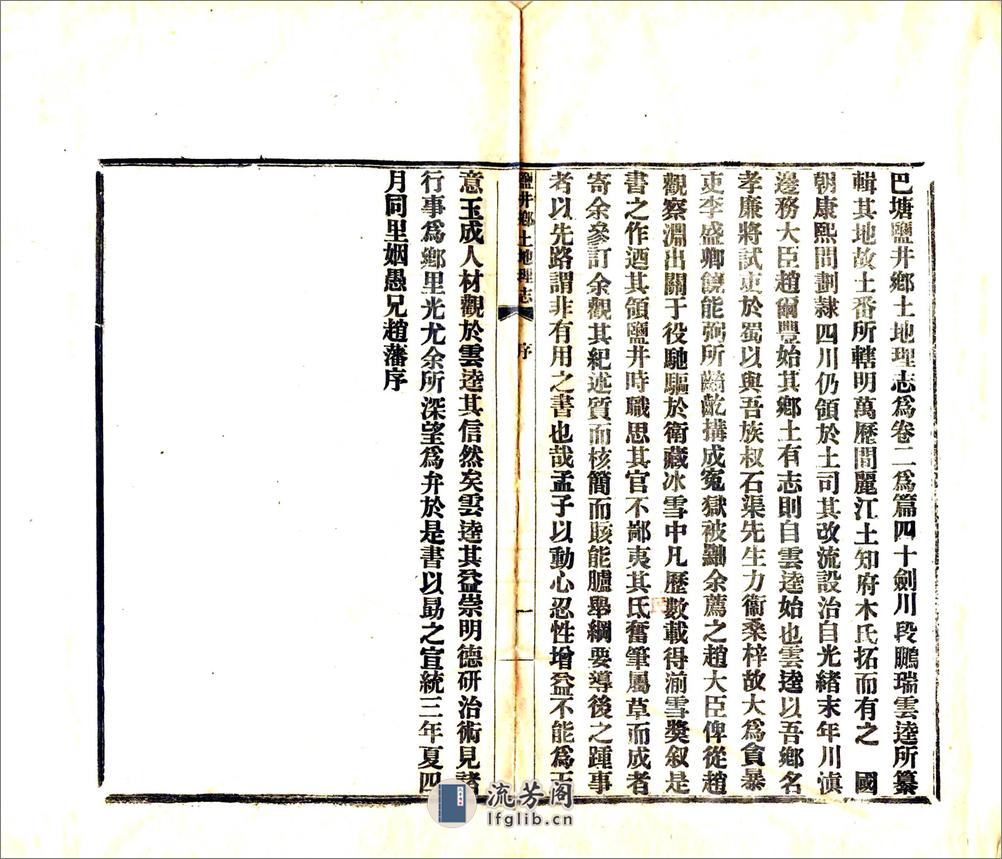 巴塘鹽井鄉土地理志爲卷二爲篇四十劍川段鵬瑞雲逵所纂
輯其地故土番所轄明萬歷間麗江土知府木氏拓而有之　國
朝康熙間劃隸四川仍領於土司其改流設治自光緒末年川滇
邊務大臣趙爾豐始其鄉土有志則自雲逵始也雲逵以吾鄉名
孝廉將試吏於蜀以與吾族叔石渠先生力衞桑梓故大爲貪暴
吏李盛卿饒能弼所齮齕搆成冤獄被黜余薦之趙大臣俾從趙
觀察淵出關于役馳驅於衛藏冰雪中凡歷數載得湔雪奬叙是
書之作迺其領鹽井時職思其官不鄙夷其氓奮筆屬草而成者
寄余參訂余觀其紀述質而核簡而賅能臚舉綱要導後之踵事
者以先路謂非有用之書也哉孟子以動心忍性增益不能爲天
鹽井鄉土地理志　序　一
意玉成人材觀於雲逵其信然矣雲逵其益崇明德研治術見諸
行事爲鄉里光尤余所深望焉弁於是書以勗之宣統三年夏四
月同里姻愚兄趙藩序
流芳阁
lfglib.cn